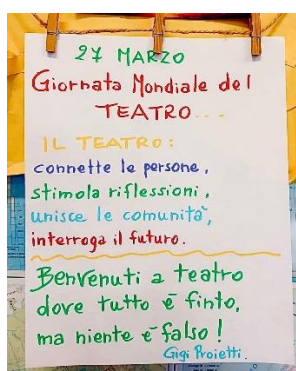 27 MARZO
Giornata Mondiale del
TEATRO...
IL TEATRO:
connette le persone,
stimola riflessioni,
unisce le comunità,
interroga il futuro.
Benvenuti a teatro
dove tutto è finto,
ma niente è falso!
Gigi Proietti.